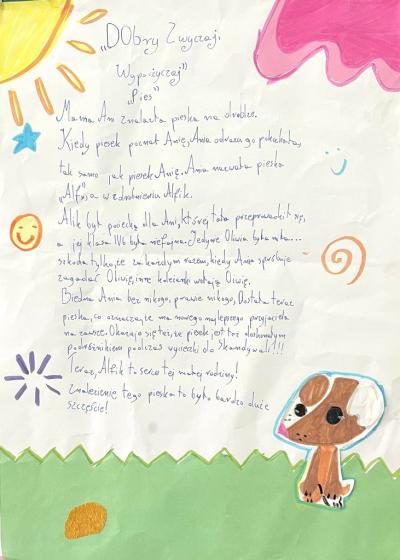 "DObry Zwyczaj:
Wypożyczaj"
"Pies"
Mama Ani znalazła pieska na drodze.
Kiedy piesek poznał Anię, Ania odrazu go pokochała,
tak samo jak piesek Anię. Ania nazwała pieska
"Alf", a w zdrobnieniu Alfik.
Alik był pociechą dla Ani, której tata przeprowadził się,
a jej klasa IVb była niefajna. Jedynie Oliwia była miła...
szkoda tylko, że za każdym razem, kiedy Ania spróbuje
zagadać Oliwię, inne koleżanki wołają Oliwię.
Biedna Ania bez nikogo, prawie nikogo, Dostała teraz
pieska, co oznacza, że ma nowego najlepszego przyjaciela
na zawsze. Okazuje się też, że piesek jest też doskonałym
podróżnikiem podczas wycieczki do Skandynawii!!!
Teraz, Alfik to serce tej małej rodziny!
Znalezienie tego pieska to było bardzo duże
szczęście!